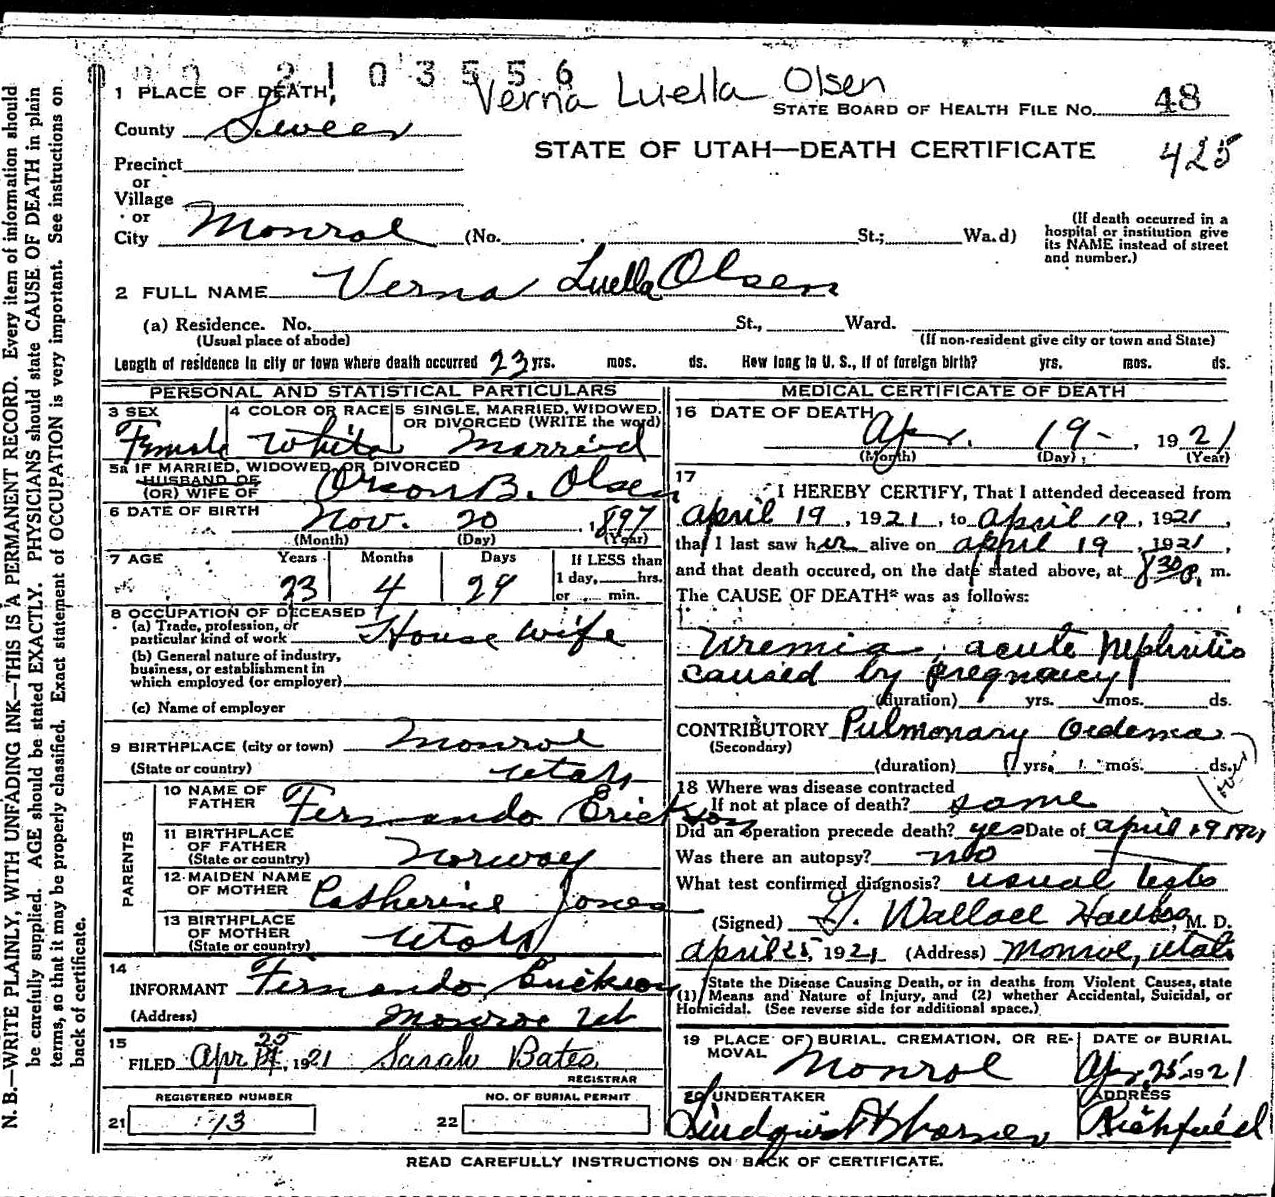 2103556
Verna Luella Olsen
1 PLACE OF DEATH,
STATE BOARD OF HEALTH FILE No. 48
County Sevier
STATE OF UTAH—DEATH CERTIFICATE 425
Precinct
or
Village
or
City Monroe (No. St.; Wa.d)
(If death occurred in a
hospital or institution give
its NAME instead of street
and number.)
2 FULL NAME Verna Luella Olsen
(a) Residence. No. St., Ward.
(Usual place of abode) (If non-resident give city or town and State)
Length of residence in city or town where death occurred 23 yrs. mos. ds. How long in U. S., if of foreign birth? yrs. mos. ds.
PERSONAL AND STATISTICAL PARTICULARS
3 SEX 4 COLOR OR RACE 5 SINGLE, MARRIED, WIDOWED,
OR DIVORCED (WRITE the word)
Female White Married
5a IF MARRIED, WIDOWED, OR DIVORCED
HUSBAND OF
(OR) WIFE OF Orson B. Olsen
6 DATE OF BIRTH Nov. 20 1897
(Month) (Day) (Year)
7 AGE Years Months Days If LESS than
1 day, hrs.
or min.
23 4 29
8 OCCUPATION OF DECEASED
(a) Trade, profession, or
particular kind of work House wife
(b) General nature of industry,
business, or establishment in
which employed (or employer)
(c) Name of employer
9 BIRTHPLACE (city or town) Monroe
(State or country) Utah
PARENTS
10 NAME OF
FATHER Fernando Erickson
11 BIRTHPLACE
OF FATHER
(State or country) Norway
12 MAIDEN NAME
OF MOTHER Catherine Jones
13 BIRTHPLACE
OF MOTHER
(State or country) Utah
14
INFORMANT Fernando Erickson
(Address) Monroe Ut
15
FILED Apr 25, 1921 Sarah Bates
REGISTRAR
REGISTERED NUMBER NO. OF BURIAL PERMIT
21 13 22
MEDICAL CERTIFICATE OF DEATH
16 DATE OF DEATH
Apr. 19-, 1921
(Month) (Day) (Year)
17
I HEREBY CERTIFY, That I attended deceased from
April 19, 1921, to April 19, 1921,
that I last saw her alive on April 19, 1921,
and that death occured, on the date stated above, at 8 30 p. m.
The CAUSE OF DEATH* was as follows:
Uremia, acute Nephritis
caused by pregnancy
(duration) yrs. mos. ds.
CONTRIBUTORY Pulmonary Oedema
(Secondary)
(duration) yrs. mos. ds.
18 Where was disease contracted
If not at place of death? same
Did an operation precede death? yes Date of April 19 1921
Was there an autopsy? no
What test confirmed diagnosis? usual tests
(Signed) G. Wallace M. D.
April 25, 1921 (Address) Monroe, Utah
State the Disease Causing Death, or in deaths from Violent Causes, state
(1) Means and Nature of Injury, and (2) whether Accidental, Suicidal, or
Homicidal. (See reverse side for additional space.)
19 PLACE OF BURIAL, CREMATION, OR RE-
MOVAL Monroe
DATE OF BURIAL
Apr. 25 1921
20 UNDERTAKER
Lindquist
ADDRESS
Richfield
READ CAREFULLY INSTRUCTIONS ON BACK OF CERTIFICATE.
N. B.—WRITE PLAINLY, WITH UNFADING INK—THIS IS A PERMANENT RECORD. Every item of information should
be carefully supplied. AGE should be stated EXACTLY. PHYSICIANS should state CAUSE OF DEATH in plain
terms, so that it may be properly classified. Exact statement of OCCUPATION is very important. See instructions on
back of certificate.